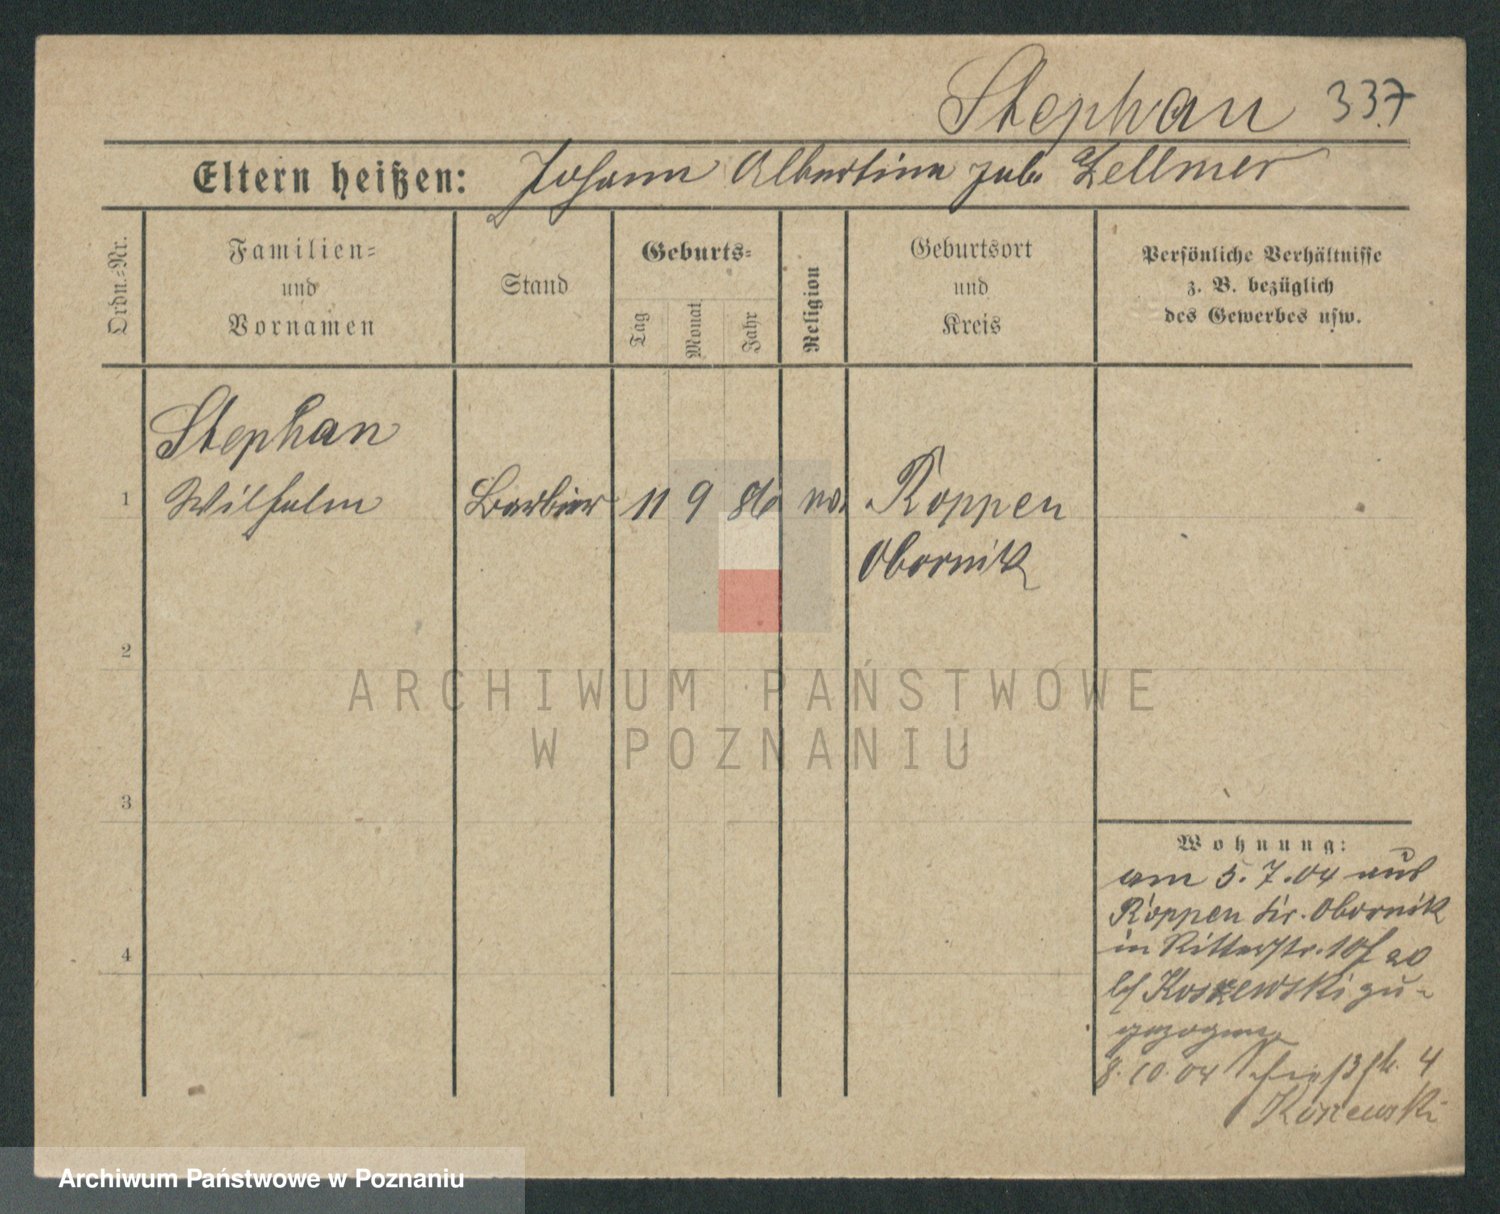 Stephan 337
Eltern heißen: Johann Albertine geb. Zellmer
Ordn.-Nr.
Familien-
und
Vornamen
Stand
Geburts-
Tag
Monat
Jahr
Religion
Geburtsort
und
Kreis
Persönliche Verhältnisse
z. B. bezüglich
des Gewerbes usw.
Stephan
1 Wilhelm Barbier 11 9 86 ev. Roppen
Obornik
2
3
4
ARCHIWUM PAŃSTWOWE
W POZNANIU
Wohnung:
am 5.7.04 aus
Roppen Kr. Obornik
in Ritterstr. 10
bei Koszewski zu-
gezogen
8.10.04 Schießstr. 4
Koszewski
Archiwum Państwowe w Poznaniu